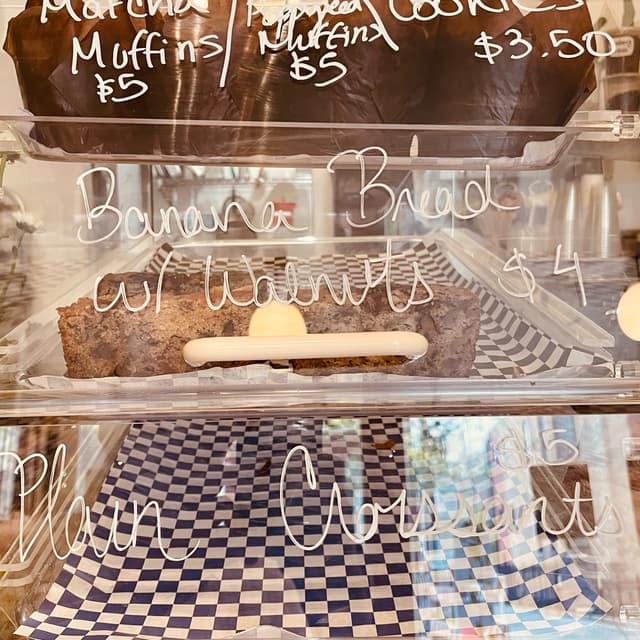 Matcha
Muffins
$5
Poppyseed
Muffins
$5
Cookies
$3.50
Banana Bread
w/ Walnuts $4
$5
Plain Croissants